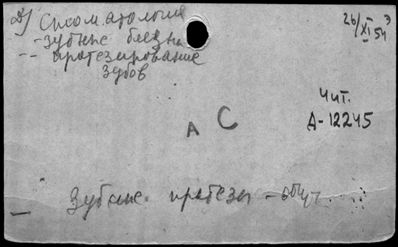 Стоматология
- зубные болезни
-- протезирование
зубов
26/XI 54
Чит.
А-12245
А С
Зубные протезы -